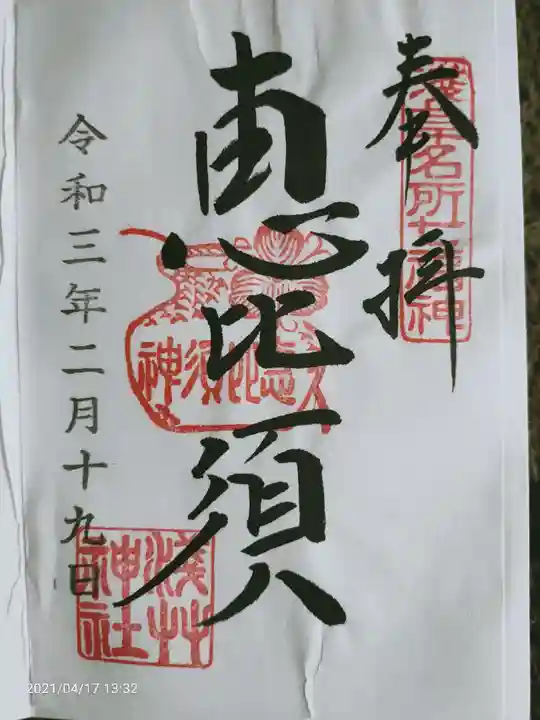 奉拝
浅草名所七福神
恵比須
恵比須神
令和三年二月十九日
浅草神社
2021/04/17 13:32